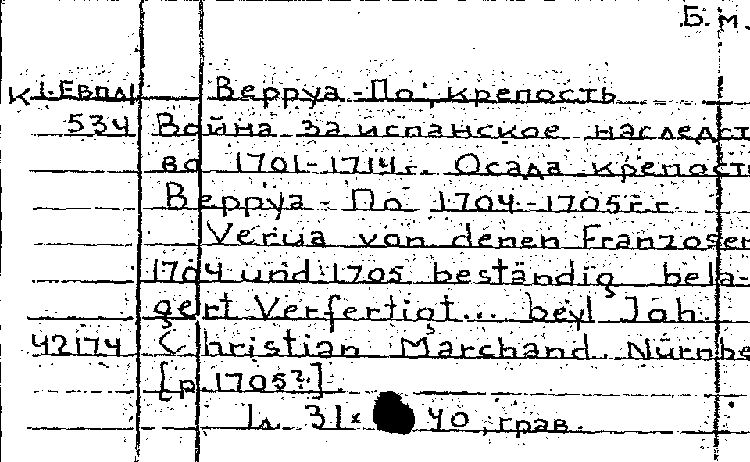 Б. м.
К 1-Евпл1 Верруа-По, крепость
534 Война за испанское наследст
во 1701-1714г. Осада крепост
Верруа-По 1704-1705г.г.
Verua von denen Franzosen
1704 und 1705 beständig bela-
gert Verfertigt... beyl Joh.
42174 Christian Marchand. Nürnbe
[p.1705?].
1л. 31× 40, грав.